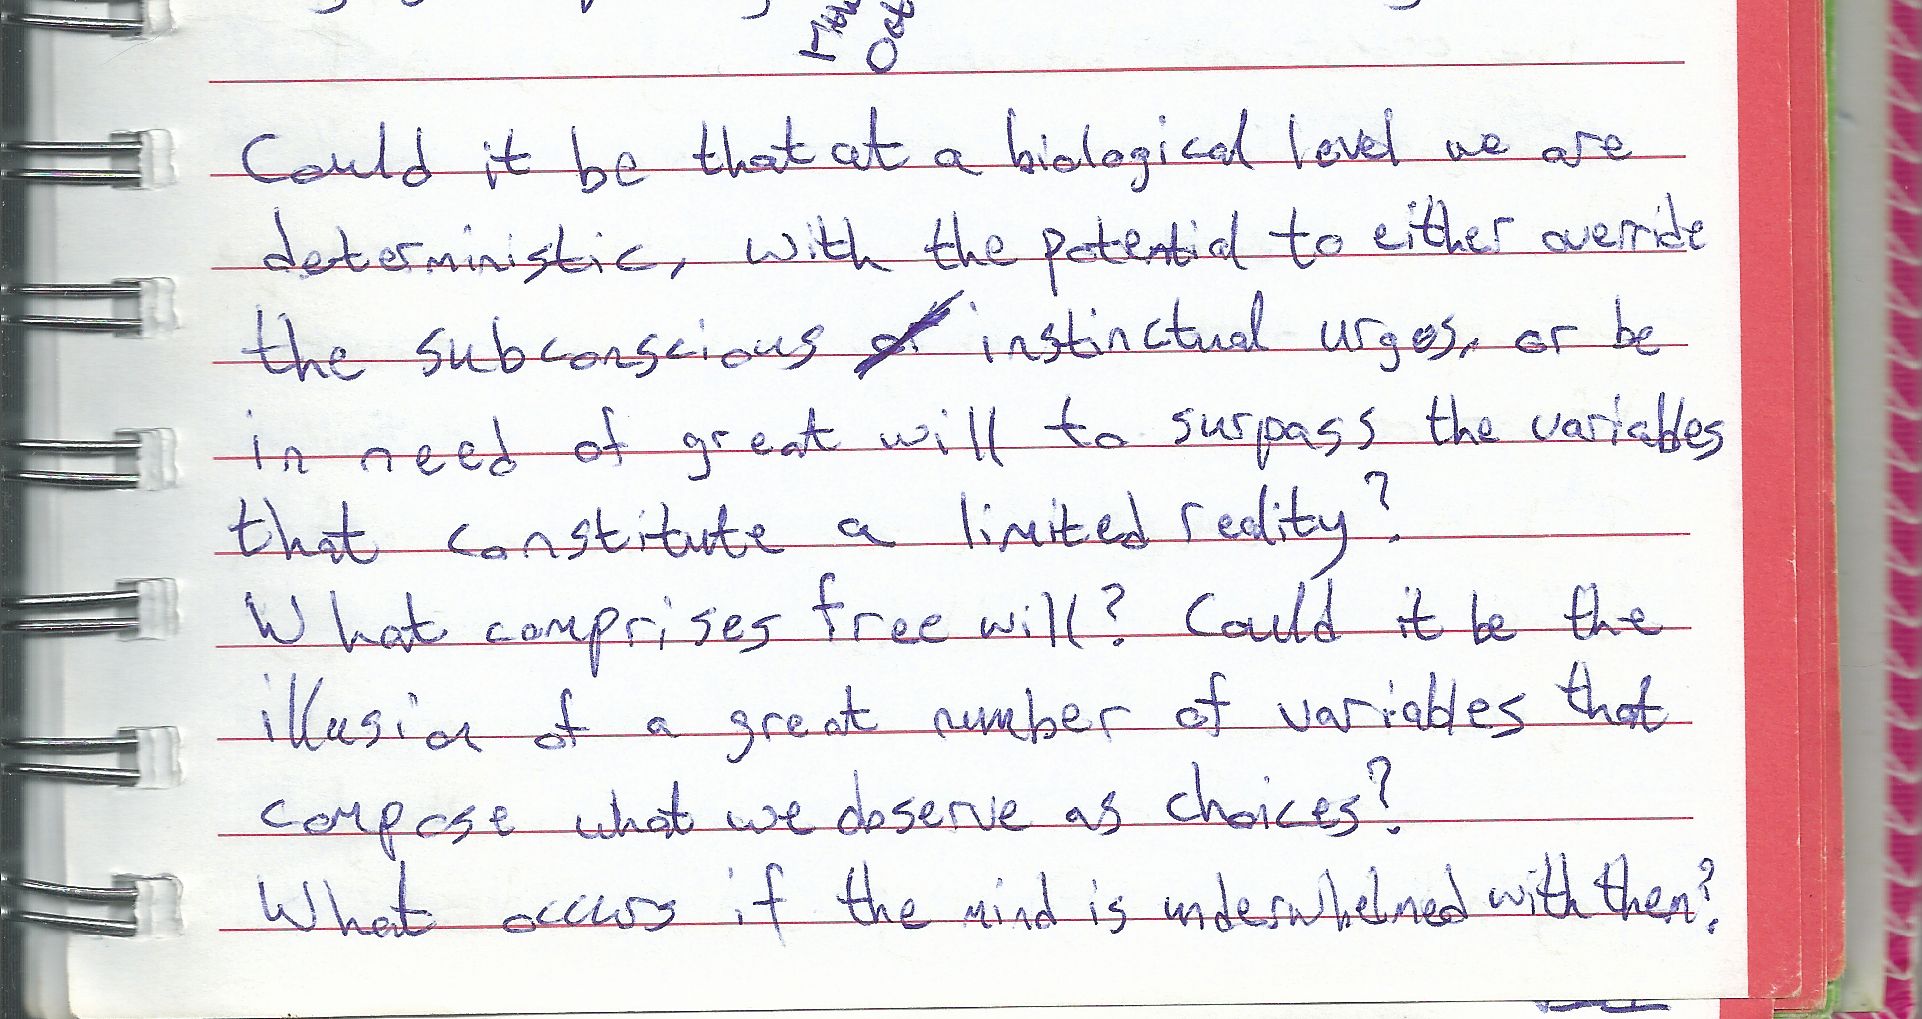 Could it be that at a biological level we are
deterministic, with the potential to either override
the subconscious instinctual urges, or be
in need of great will to surpass the variables
that constitute a limited reality?
What comprises free will? Could it be the
illusion of a great number of variables that
compose what we observe as choices?
What occurs if the mind is underwhelmed with them?